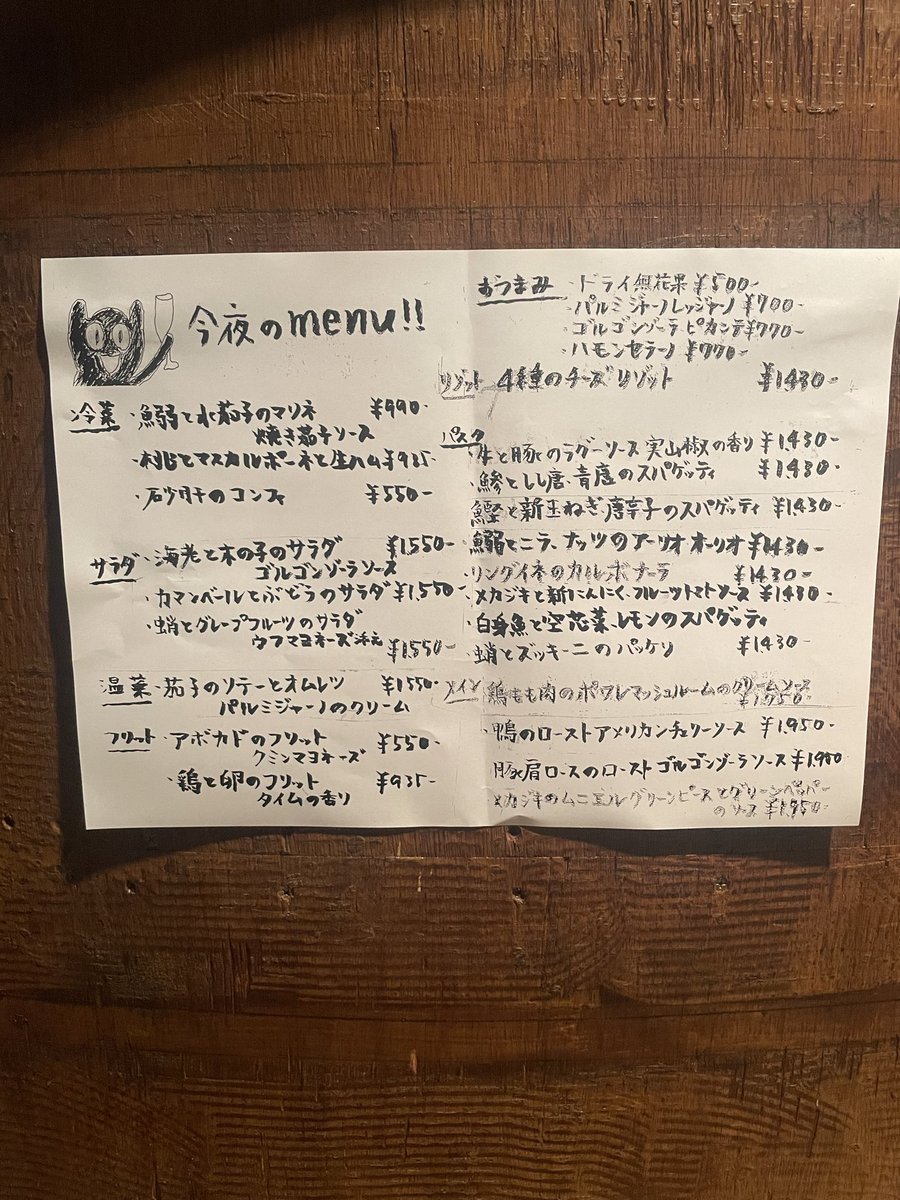 今夜のmenu!!
冷菜 ・鰯と水茄子のマリネ ¥990-
焼き茄子ソース
・桃とマスカルポーネと生ハム ¥935
・砂肝のコンフィ ¥550-
サラダ ・海老と木の子のサラダ ¥1,550-
ゴルゴンゾーラソース
・カマンベールとぶどうのサラダ ¥1,550-
・蛸とグレープフルーツのサラダ
ウフマヨネーズ添え ¥1,550-
温菜 ・茄子のソテーとオムレツ ¥1550-
パルミジャーノのクリーム
フリット ・アボカドのフリット ¥550-
クミンマヨネーズ
・鶏と卵のフリット ¥935-
タイムの香り
おつまみ ・ドライ無花果 ¥500-
・パルミジャーノレッジャーノ ¥700-
・ゴルゴンゾーラピカンテ ¥770-
・ハモンセラーノ ¥770-
リゾット 4種のチーズリゾット ¥1430-
パスタ
・牛と豚のラグーソース 実山椒の香り ¥1,430-
・鯵としし唐、青唐のスパゲッティ ¥1430-
・鰹と新玉ねぎ、唐辛子のスパゲッティ ¥1430-
・鰯とニラ、ナッツのアーリオオーリオ ¥1430-
・リングイネのカルボナーラ ¥1430-
・メカジキと新にんにく、フルーツトマトソース ¥1430-
・白身魚と空芯菜、レモンのスパゲッティ
・蛸とズッキーニのパッケリ ¥1430-
メイン ・鶏もも肉のポワレマッシュルームのクリームソース
¥1,950-
・鴨のローストアメリカンチェリーソース ¥1,950-
・豚肩ロースのロースト ゴルゴンゾーラソース ¥1,950
・メカジキのムニエルグリーンピースとグリーンペッパー
のソース ¥1,950-